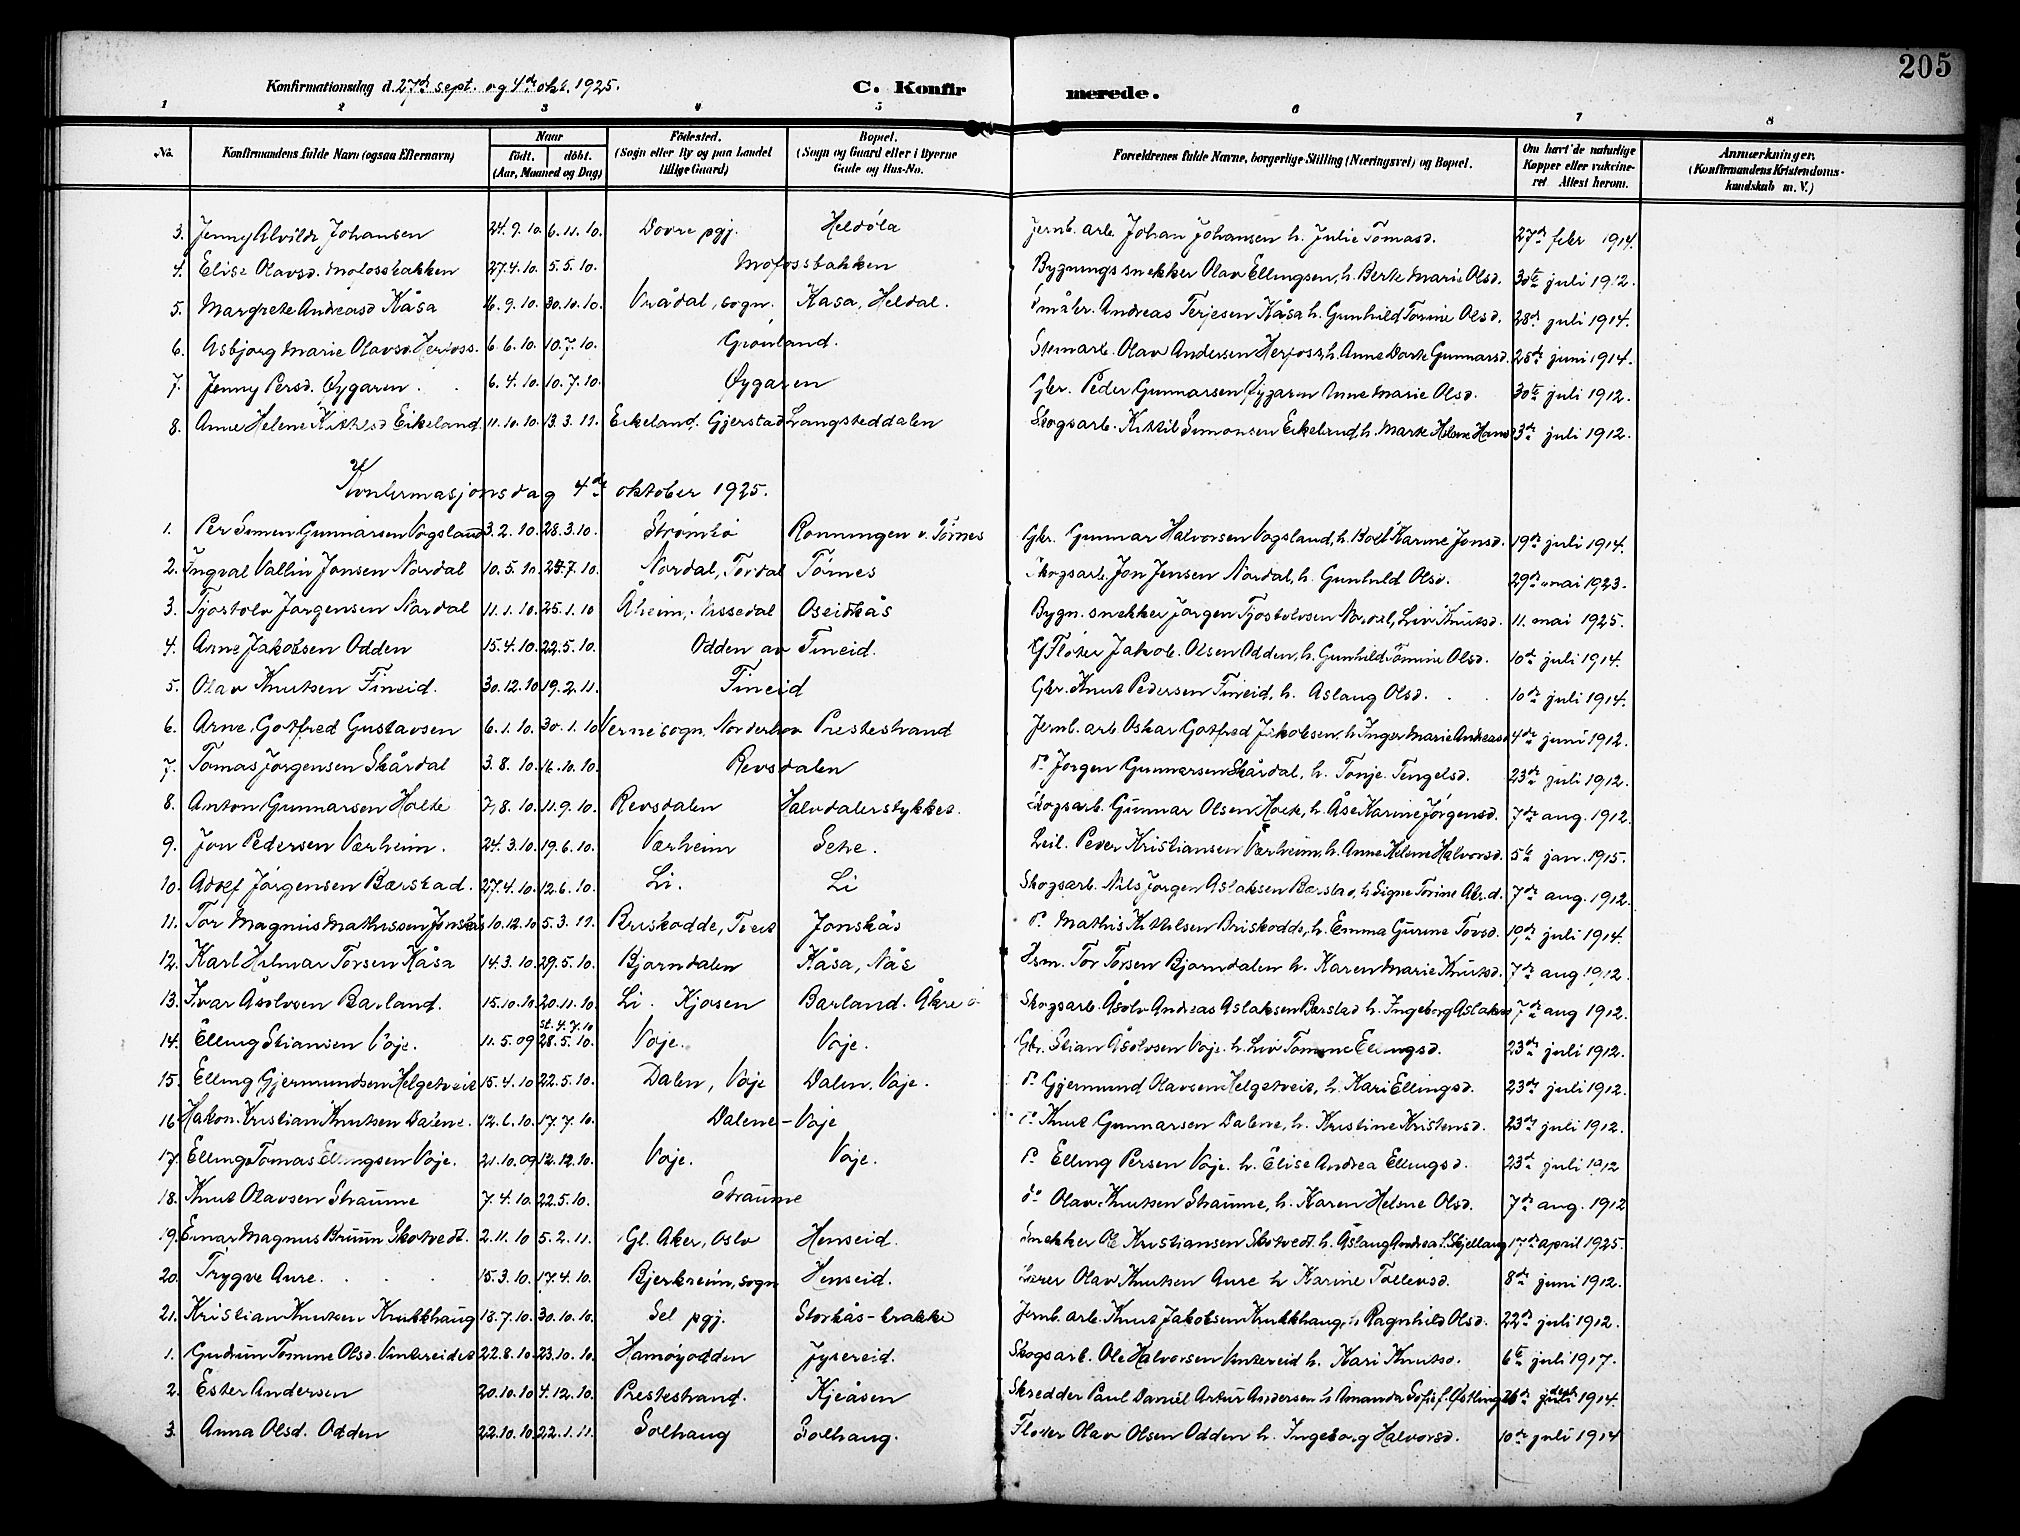 205
Konfirmationsdag d. 27de sept. og 4de okt. 1925.
C. Konfirmerede.
1 2 3 4 5 6 7 8
No. Konfirmandens fulde Navn (ogsaa Efternavn) Naar födt. döbt. (Aar, Maaned og Dag) Födested. (Sogn eller By og paa Landet tillige Gaard) Bopæl. (Sogn og Gaard eller i Byerne Gade og Hus-No. Forældrenes fulde Navne, borgerlige Stilling (Næringsvei) og Bopæl. Om havt de naturlige Kopper eller vakcineret Attest herom. Anmærkninger. (Konfirmandens Kristendomskundskab m. V.)
3. Jenny Alvilde Johansen 24.9.10. 6.11.10. Dovre pgj. Heldøla Jernb. arb. Johan Johansen h. Julie Tomasd. 27de febr 1914.
4. Elise Olavsd. Mofossbakken 27.4.10. 5.5.10. Mofossbakken Bygningssnekker Olav Ellingsen, h. Berte Marie Olsd. 30te juli 1912.
5. Margrete Andreasd Kåsa 16.9.10. 30.10.10. Vrådal, sogn. Kasa, Heldal. Småbr. Andreas Terjesen Kåsa h. Gunhild Torine Olsd. 28de juli 1914.
6. Asbjørg Marie Olavsd. Herfoss. 6.6.10. 10.7.10. Grønland. Stenarb. Olav Andersen Herfoss, h. Anne Dorte Gunnarsd. 28de juni 1914.
7. Jenny Persd. Øygaren. 6.4.10. 10.7.10. Øygaren Gbr. Peder Gunnarsen Øygaren Anne Marie Olsd. 30te juli 1912.
8. Anne Helene Kittilsd Eikeland 11.10.10. 13.3.11. Eikeland, Gjerstad Langsteddalen Skogsarb. Kittil Simonsen Eikelund, h. Marte Helene Hansd 3de juli 1912.
Konfirmasjonsdag 4de oktober 1925.
1. Per Simen Gunnarsen Vogsland 3.2.10. 28.3.10. Strømbø Rønningen v. Tørnes Gbr. Gunnar Halvorsen Vogsland, h. Karine Jonsd. 19de juli 1914.
2. Ingval Vallin Jonsen Nordal 10.5.10. 24.7.10. Nordal, Tordal Tørnes Skogsarb. Jon Jensen Nordal, h. Gunhild Olsd. 29de mai 1923.
3. Tjostolv Jørgensen Nordal 11.1.10. 25.1.10 Åheim, Nissedal Oseidkås Bygn. snekker Jørgen Tjostolvsen Nordal, Liv Knutsd. 11. mai 1925.
4. Arne Jakobsen Odden 15.4.10. 22.5.10. Odden av Fineid. Fløter Jakob Olsen Odden, h. Gunhild Tomine Olsd. 10de juli 1914.
5. Olav Knutsen Fineid. 30.12.10 19.2.11. Fineid Gbr. Knut Pedersen Fineid, h. Aslaug Olsd. 10de juli 1914.
6. Arne Gotfred Gustavsen 6.1.10. 30.1.10 Vernesogn, Norderhov Prestestrand Jernb. arb Oskar Gotfred Jakobsen, h Inger Marie Andreasd 4de juni 1912.
7. Tomas Jørgensen Skårdal 3.8.10. 16.10.10. Revsdalen do Jørgen Gunnarsen Skårdal, h. Tonje Tengelsd. 23de juli 1912.
8. Anton Gunnarsen Holte 7.8.10. 11.9.10. Revsdalen Halvdalerstykket. Skogsarb. Gunnar Olsen Holte, h. Åse Karine Jørgensd. 7de aug. 1912.
9. Jon Pedersen Værheim. 24.3.10. 19.6.10. Værheim Seke. Leil. Peder Kristiansen Værheim, h. Anne Helene Halvorsd. 5te jan. 1915.
10. Adolf Jørgensen Bærstad. 27.4.10. 12.6.10. Li. Li Skogsarb. Nils Jørgen Aslaksen Bærstad, h. Signe Torine Abr.d. 7de aug. 1912.
11. Tor Magnus Mathissen Jonskås 10.12.10 5.3.11. Briskodde, Tveit Jonskås do Mathis Kittilsen Briskodde, h. Emma Gurine Torsd. 19de juli 1914.
12. Karl Hilmar Torsen Kåsa 14.3.10. 29.5.10. Bjorndalen Kåsa, Nås Hsm. Tor Torsen Bjorndalen h. Karen Marie Knutsd. 7de aug 1912.
13. Ivar Åsolvsen Barland. 15.10.10 20.11.10. Li. Kjosen Barland. Åkre Skogsarb. Åsolv Andreas Aslaksen Bærstad h. Ingeborg Aslaksd 7de aug 1912.
14. Elling Stiansen Voje. 11.5.09 st. 4.7.10 28.5.10. Voje. Voje. Gbr. Stian Åsolvsen Voje h. Liv Tomine Ellingsd. 23de juli 1912.
15. Elling Gjermundsen Helgetveit 15.4.10 22.5.10. Dalen, Voje Dalen, Voje. do Gjermund Olavsen Helgetveit, h. Kari Ellingsd. 23de juli 1912.
16. Hakon Kristian Knutsen Dalene. 12.6.10. 17.7.10. Dalene - Voje do Knut Gunnarsen Dalene, h. Kristine Kristensd. 23de juli 1912.
17. Elling Tomas Ellingsen Voje. 21.10.09 12.12.10. Voje. Voje. do Elling Persen Voje. h. Elise Andrea Ellingsd. 23de juli 1912
18. Knut Olavsen Straume 7.4.10. 22.5.10. Straume do Olav Knutsen Straume, h. Karen Helene Olsd. 7de aug. 1912
19. Einar Magnus Bruun Skotvedt. 2.11.10 5.2.11. Gl. Aker, Oslo Henseid. Snekker Ole Kristiansen Skotvedt. h. Åslaug Andrea f. Skjellaug 17de april 1925.
20. Trygve Aure. 15.3.10. 17.4.10. Bjerkreim, sogn Henseid. Lærer Olav Knutsen Aure h Karine Tollevsd. 8de juni 1912.
21. Kristian Knutsen Krukkhaug 18.7.10. 30.10.10. Sel pgj. Storkås-brakke Jernb. arb. Knut Jakobsen Krukkhaug, h Ragnhild Olsd. 22de juli 1912.
1. Gudrun Tomine Olsd. Vintereidet 22.8.10. 23.10.10. Hamøyodden Jysereid. Skogsarb. Ole Halvorsen Vintereid h. Kari Knutsd. 6te juli 1917.
2. Ester Andersen 20.10.10 4.12.10. Prestestrand. Kjeåsen Skredder Paul Daniel Artur Andersen h Amanda Sofie f. Østling 26de juli 1914.
3. Anna Olsd. Odden 22.10.10. 22.1.11. Solhaug Solhaug. Fløter Olav Olsen Odden h. Ingeborg Halvorsd. 10de juli 1914